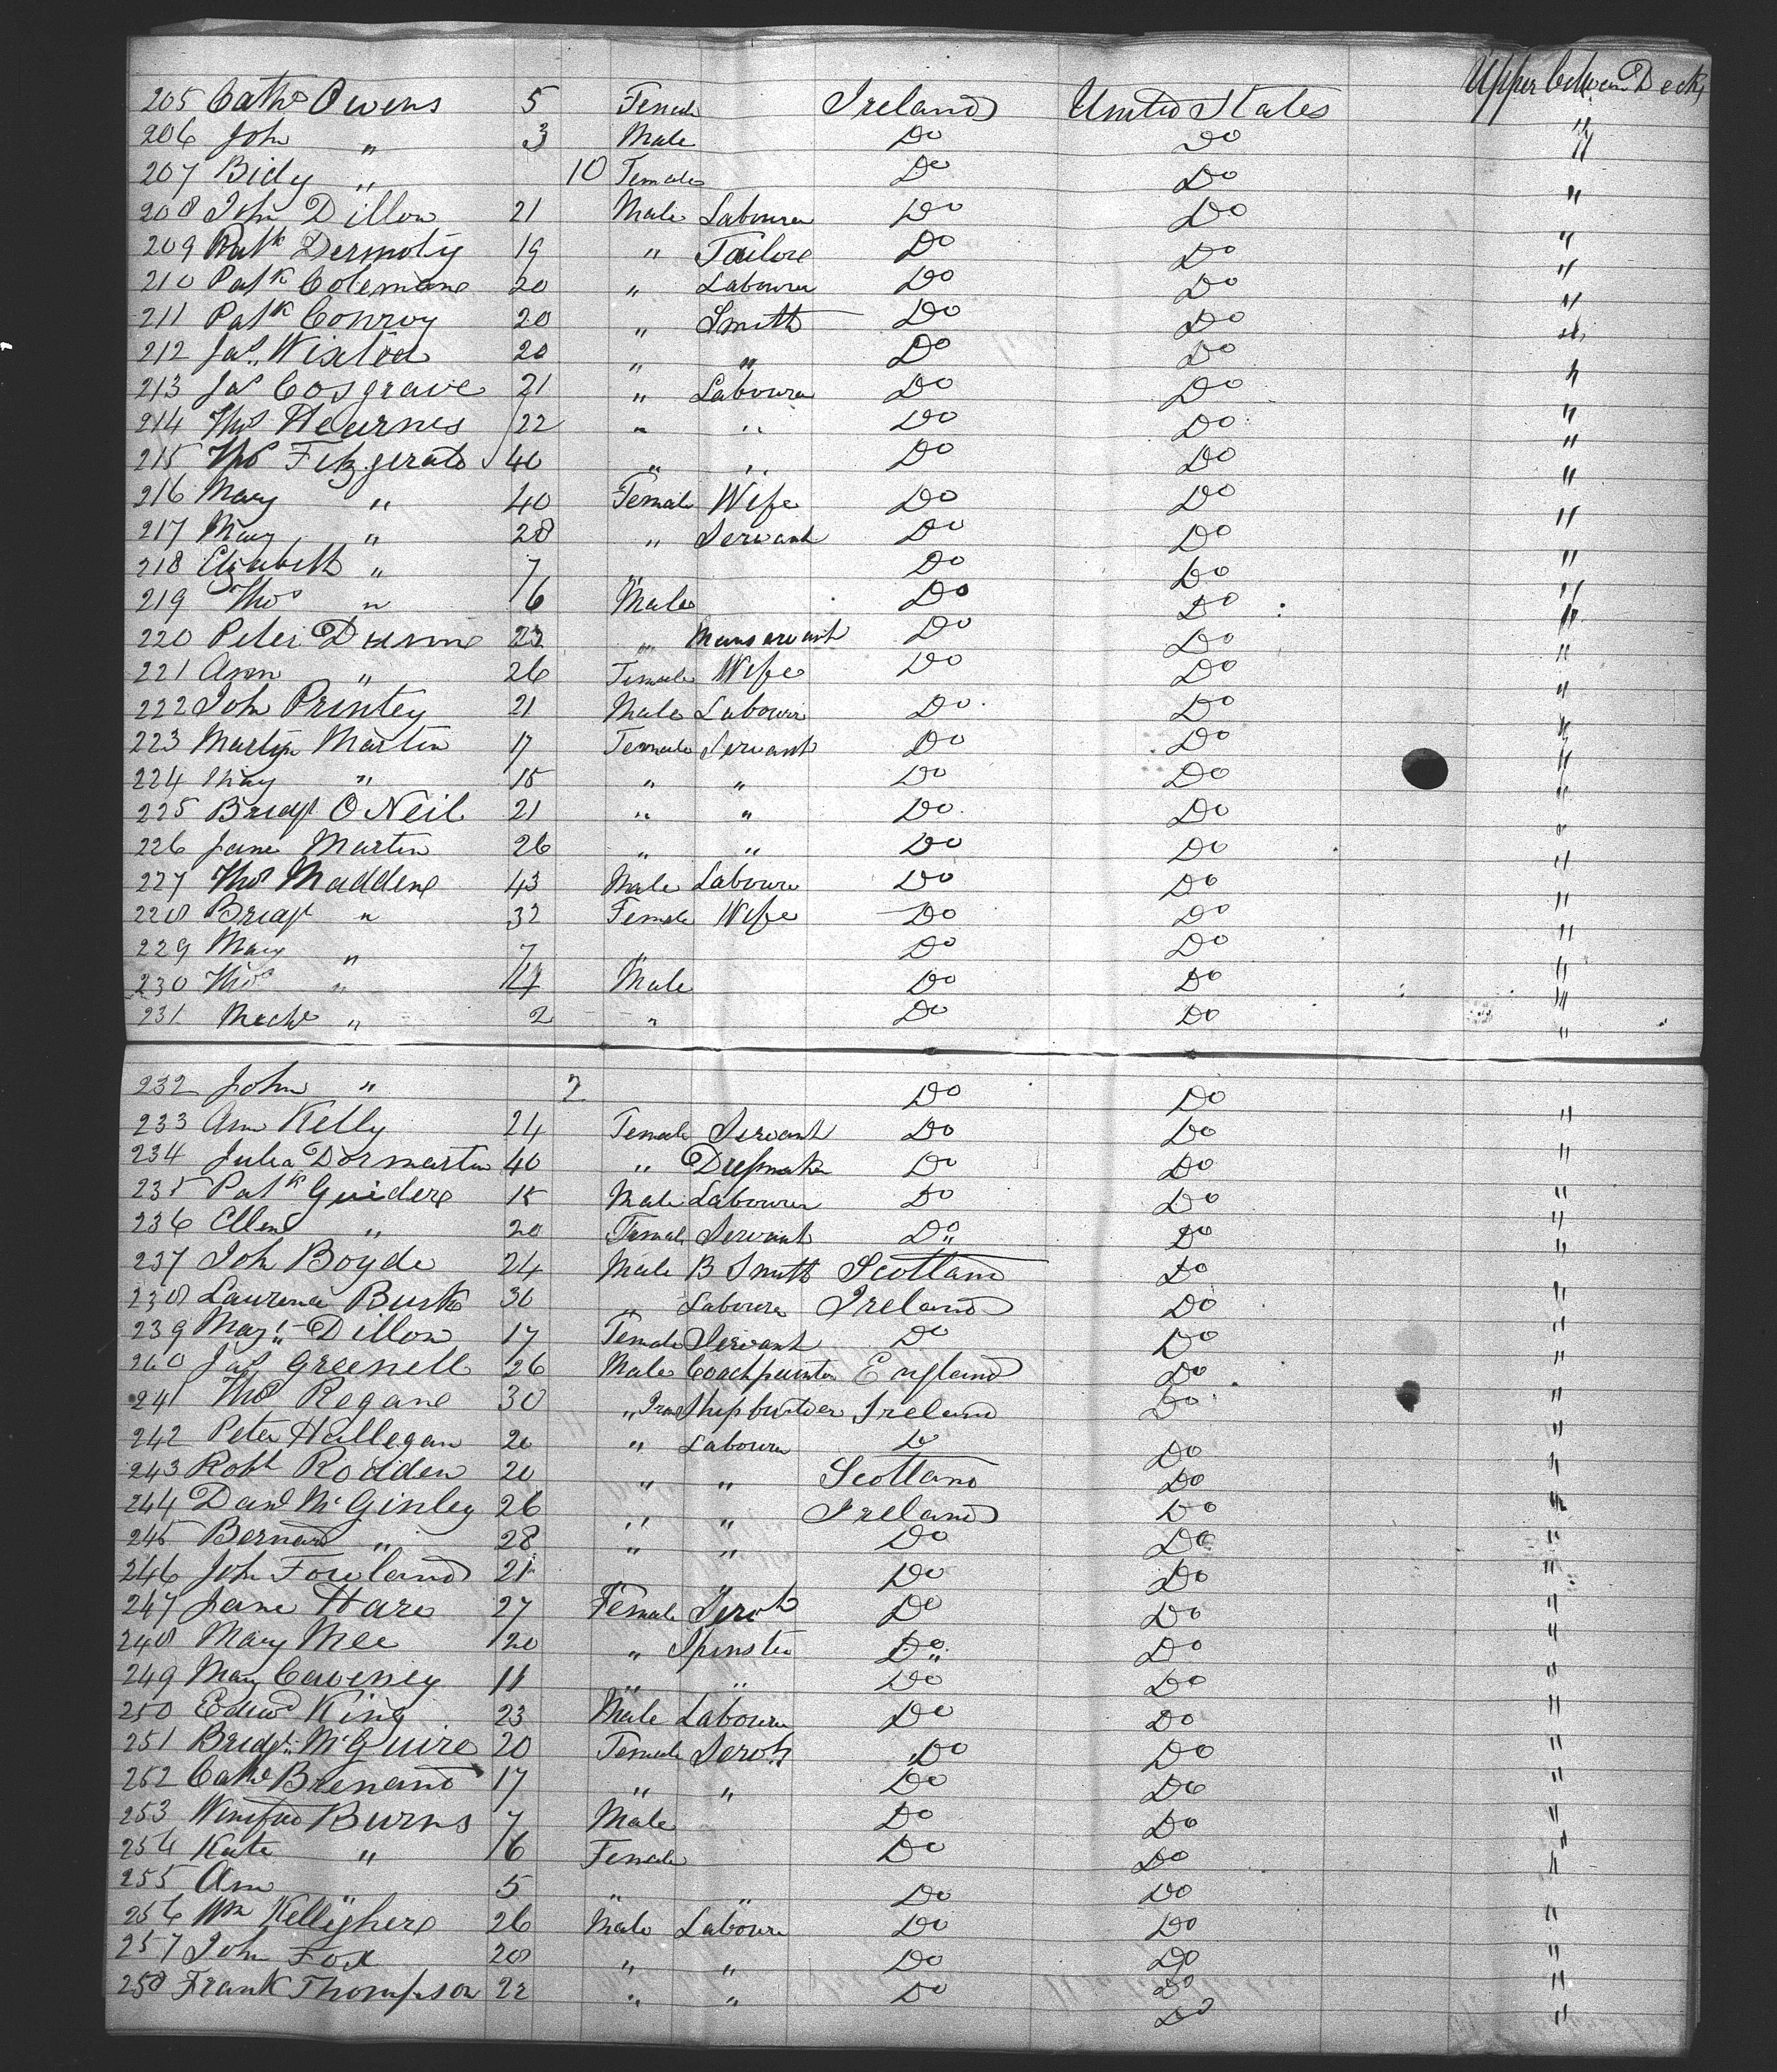 205 Cathe Owens 5 Female Ireland United States Upper between Decks
206 John " 3 Male Do Do "
207 Bidy " 10 Female Do Do "
208 John Dillon 21 Male Labourer Do Do "
209 Patk Dermoty 19 " Tailore Do Do "
210 Patk Colemane 20 " Labourer Do Do "
211 Patk Conroy 20 " Smith Do Do "
212 Jas Wixtod 20 " " Do Do "
213 Jas Cosgrave 21 " Labourer Do Do "
214 Thos Hearnes 22 " " Do Do "
215 Thos Fitzgerald 40 " " Do Do "
216 Mary " 40 Female Wife Do Do "
217 Mary " 28 " Servant Do Do "
218 Elizabeth " 7 " Do Do "
219 Thos " 6 Male Do Do "
220 Peter Dunne 23 " Manservant Do Do "
221 Ann " 26 Female Wife Do Do "
222 John Printey 21 Male Labourer Do Do "
223 Martyn Martin 17 Female Servant Do Do "
224 Mary " 15 " " Do Do "
225 Bridgt O Neil 21 " " Do Do "
226 Jane Martin 26 " " Do Do "
227 Thos Maddene 43 Male Labourer Do Do "
228 Bridgt " 32 Female Wife Do Do "
229 Mary " 7 " Do Do "
230 Thos " 4 Male Do Do "
231 Michl " 2 " Do Do "
232 John " 2 Do Do "
233 Ann Kelly 24 Female Servant Do Do "
234 Julia Dormartin 40 " Dressmaker Do Do "
235 Patk Guidere 15 Male Labourer Do Do "
236 Ellen " 20 Female Servant Do Do "
237 Joh Boyde 24 Male B Smith Scotland Do "
238 Laurence Burke 30 " Labourer Ireland Do "
239 Margt Dillon 17 Female Servant Do Do "
240 Jas Greenell 26 Male Coachpainter England Do "
241 Thos Regane 30 " Iron Shipbuilder Ireland Do "
242 Peter Hallegan 20 " Labourer Do Do "
243 Robt Rodden 20 " " Scotland Do "
244 Danl McGinley 26 " " Ireland Do "
245 Bernard " 28 " " Do Do "
246 John Fowland 21 Do Do "
247 Jane Hare 27 Female Servt Do Do "
248 Mary Mee 20 " Spinster Do Do "
249 Mary Caveney 11 " " Do Do "
250 Edwd King 23 Male Labourer Do Do "
251 Bridgt McGuire 20 Female Servt Do Do "
252 Cathe Brenand 17 " " Do Do "
253 Winifred Burns 7 Male Do Do "
254 Kate " 6 Female Do Do "
255 Ann " 5 " " Do Do "
256 Wm Kellighere 26 Male Labourer Do Do "
257 John Fox 20 " " Do Do "
258 Frank Thompson 22 " " Do Do "
Do